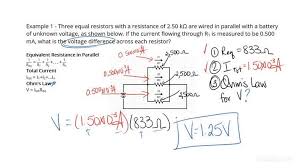 Example 1 - Three equal resistors with a resistance of 2.50 kΩ are wired in parallel with a battery
of unknown voltage, as shown below. If the current flowing through R₁ is measured to be 0.500
mA, what is the voltage difference across each resistor?
Equivalent Resistance in Parallel
Total Current
Ohm's Law
0.500x10⁻³A
2,500Ω
① Req = 833Ω
0.500x10⁻³A
2,500Ω
② I tot = 1.50x10⁻³A
0.500x10⁻³A
2,500Ω
③ Ohm's Law
for V?
V = (1.50x10⁻³A)(833Ω)
V = 1.25V